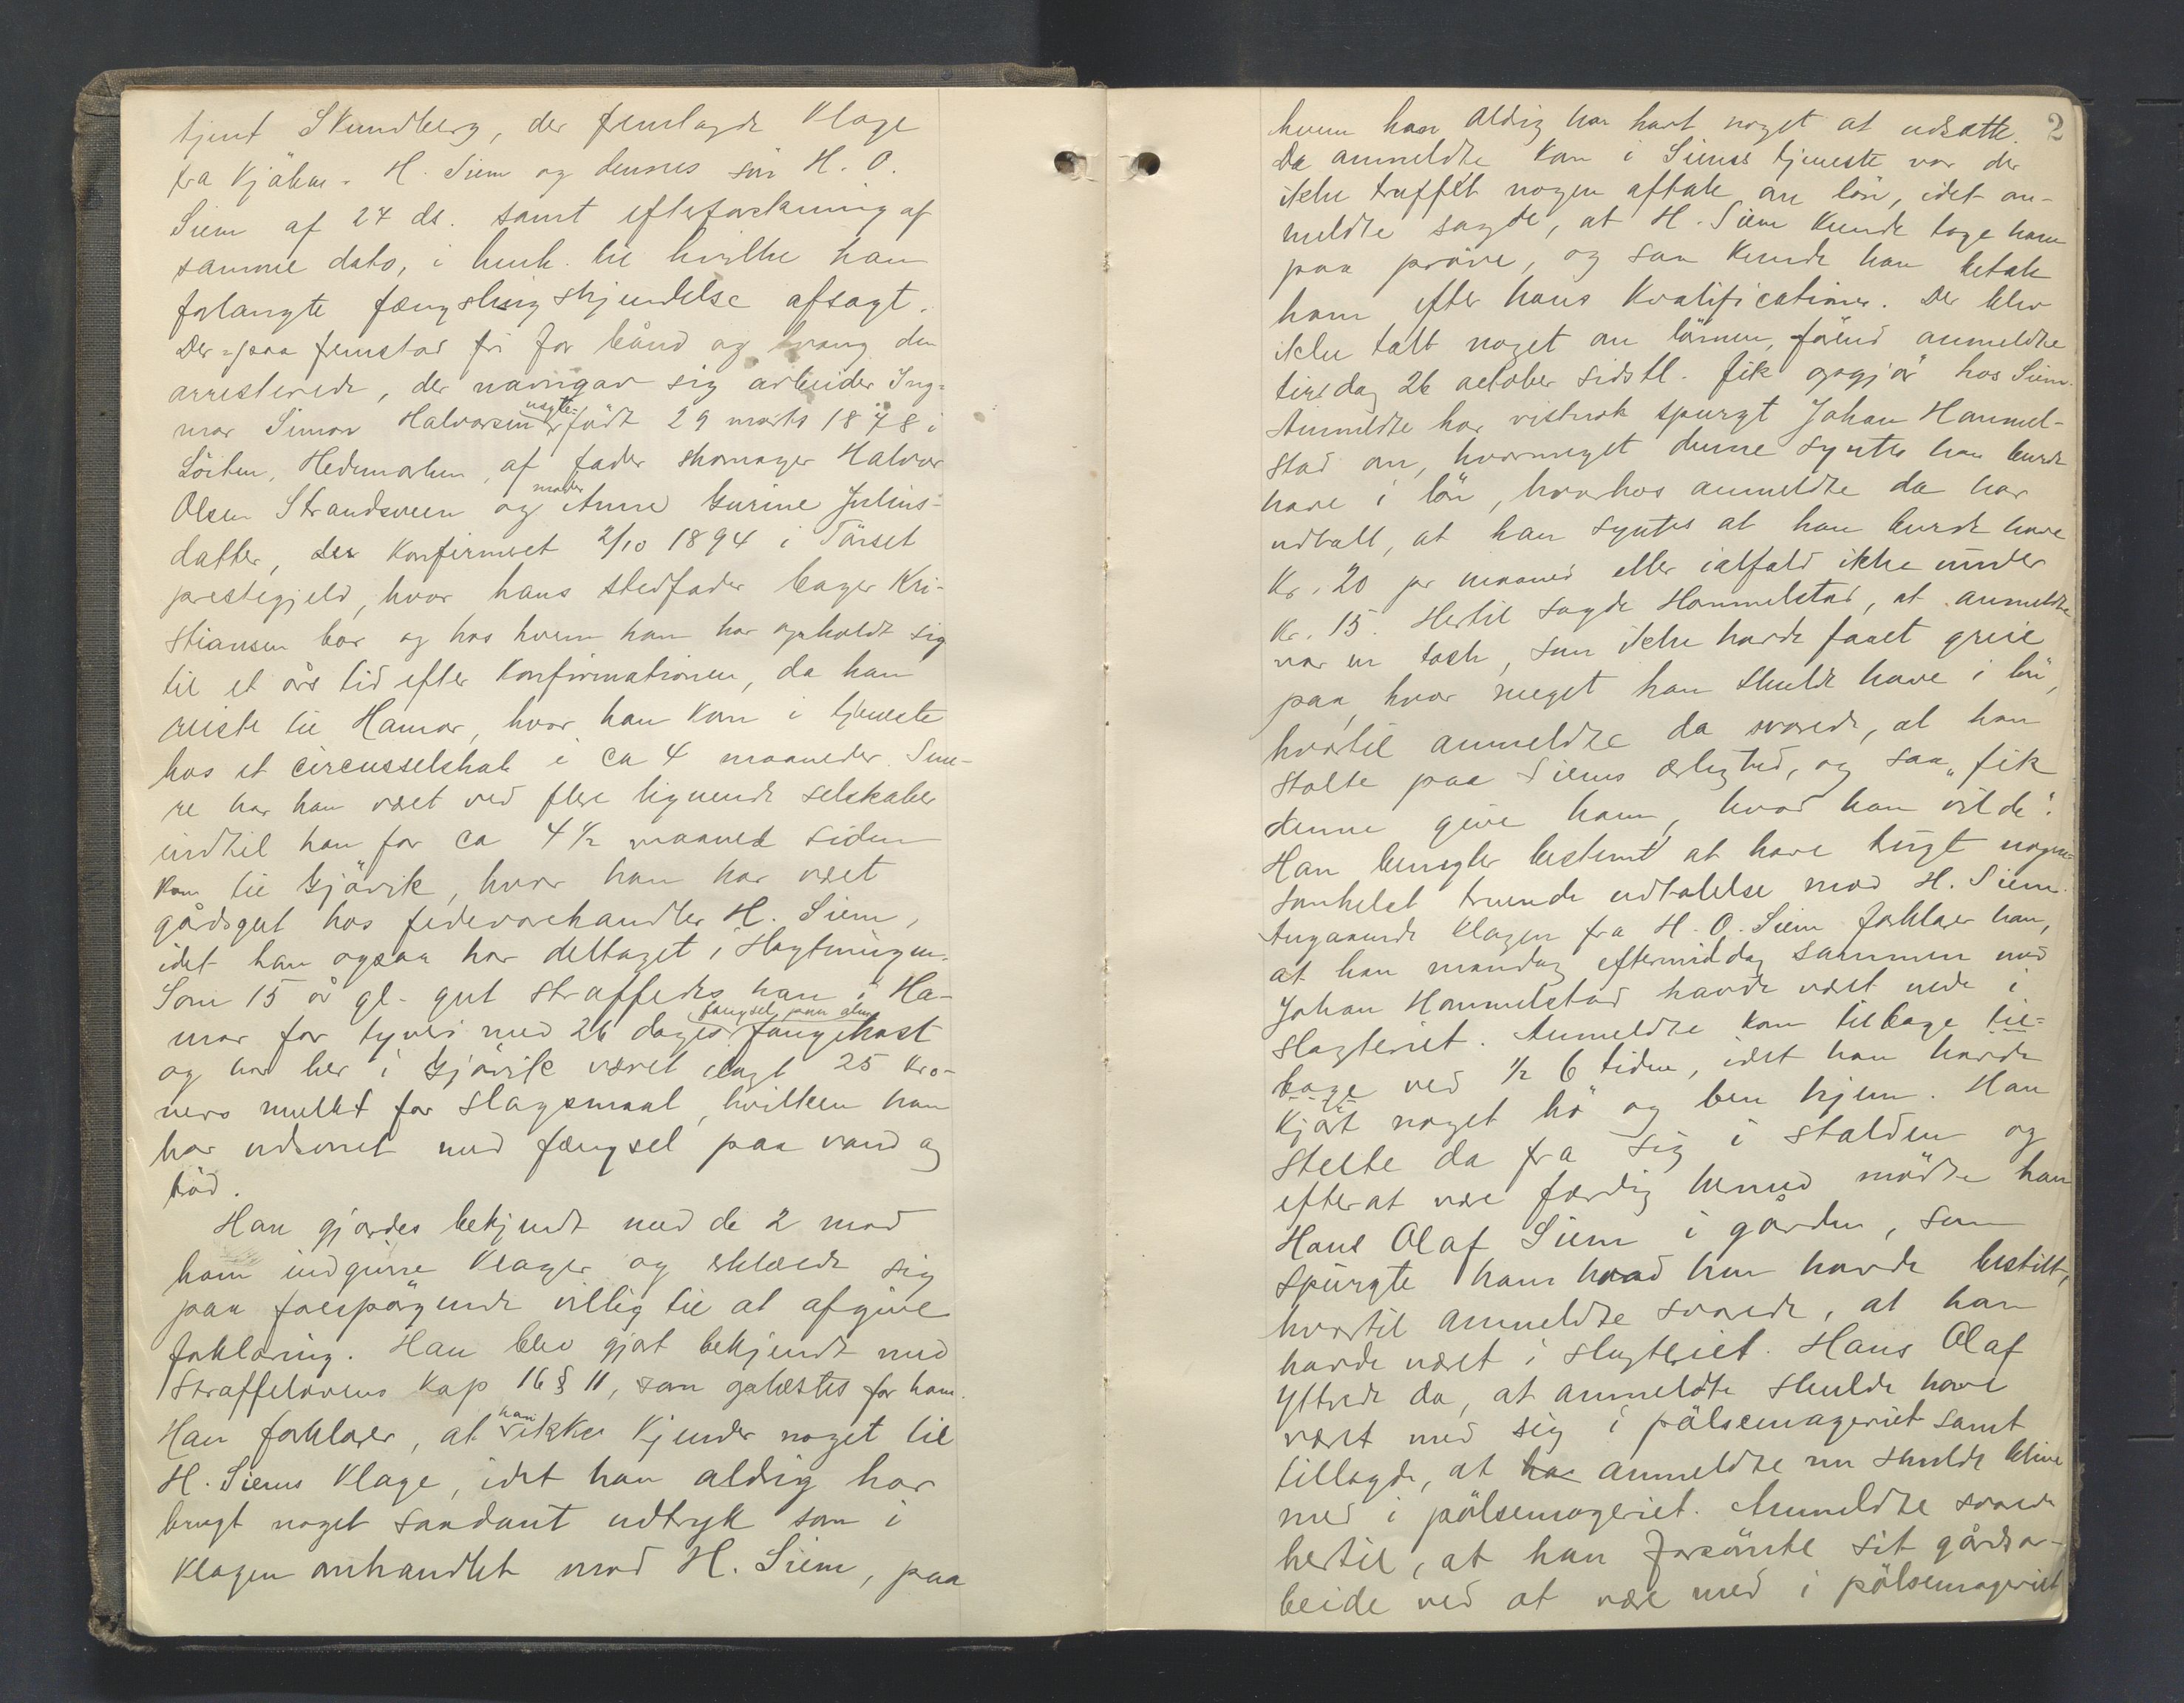 tjent Skundberg, der fremlagde Klage
fra Kjöbm. H. Siem og dennes sön H. O.
Siem af 27 ds. samt efterforskning af
samme dato, i henh. til hvilke han
forlangte fængslingskjendelse afsagt.
Der-paa fremstod fri for bånd og tvang den
arresterede, der navngav sig arbeider Ing-
mar Simon Halvorsen uegte födt 29 marts 1878 i
Löiten, Hedemarken, af fader skomager Halvor
Olsen Strandsveen og moder Anne Gurine Julius-
datter, der Konfirmeret 2/10 1894 i Tönset
prestegjeld, hvor hans stedfader bager Kri-
stiansen bor og hos hvem han har opholdt sig
til et års tid efter Konfirmationen, da han
reiste til Hamar, hvor han kom i tjeneste
hos et circusselskab i ca 4 maaneder. Sene-
re har han været ved flere lignende selskaber
indtil han for ca 4 ½ maaned siden
kom til Gjövik, hvor han har været
gårdsgut hos fedevarehandler H. Siem,
idet han ogsaa har deltaget i slagtningen.
Som 15 år gl. gut straffedes han i Ha-
mar for tyveri med 26 dages fængsel paa alm. fangekost
og har her i Gjövik været ilagt 25 Kro-
ners mulkt for slagsmaal, hvilken han
har udsonet med fængsel paa vand og
bröd.
Han gjordes bekjendt med de 2 mod
ham indgivne Klager og erklærede sig
paa forespörgende villig til at afgive
forklaring. Han blev gjort bekjendt med
Straffelovens Kap 16 § 11, som oplæstes for ham.
Han forklarer, at han ikke Kjender noget til
H. Siems Klage, idet han aldrig har
brugt noget saadant udtryk som i
Klagen omhandlet mod H. Siem, paa
2
hvem han aldrig har havt noget at udsætte.
Da anmeldte kom i Siems tjeneste var der
ikke truffet nogen aftale om lön, idet an-
meldte sagde, at H. Siem kunde tage ham
paa pröve, og saa kunde han betale
ham efter hans Kvalificationer. Der blev
ikke talt noget om lönnen, förend anmeldte
tirsdag 26 october sidstl. fik opgjör hos Siem.
Anmeldte har vistnok spurgt Johan Hammel-
stad om, hvormeget denne syntes han burde
have i lön, hvorhos anmeldte da har
udtalt, at han syntes at han burde have
Kr. 20 pr maaned eller ialfald ikke under
Kr. 15. Hertil sagde Hammelstad, at anmeldte
var en tosk, som ikke havde faaet greie
paa, hvor meget han skulde have i lön,
hvortil anmeldte da svarede, at han
stolte paa Siems ærlighed, og saa „fik
denne give ham, hvad han vilde".
Han benegter bestemt at have brugt nogen-
somhelst truende udtalelse mod H. Siem.
Angaaende Klagen fra H. O. Siem forklarer han,
at han mandag eftermiddag sammen med
Johan Hammelstad havde været nede i
slagteriet. Anmeldte kom tilbage til-
bage ved ½ 6 tiden, idet han havde
Kjört noget hö og ben hjem. Han
stelte da fra sig i stalden og
efter at være færdig hermed mödte han
Hans Olaf Siem i gården, som
spurgte ham hvad han havde bestilt,
hvortil anmeldte svarede, at han
havde været i slagteriet. Hans Olaf
ytrede da, at anmeldte skulde have
været med sig i pölsemageriet samt
tillagde, at ha anmeldte nu skulde blive
med i pölsemageriet. Anmeldte svarede
hertil, at han forsömte sit gårdsar-
beide ved at være med i pölsemageriet